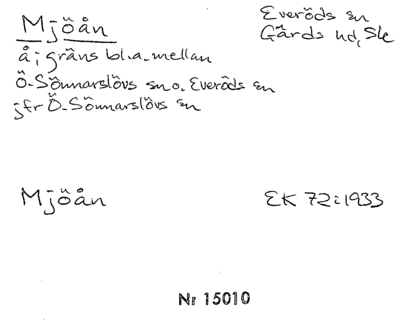 Mjöån
Everöds sn
Gärds hd, Sk
å i gräns bl.a. mellan
Ö. Sönnarslövs sn o. Everöds sn
jfr Ö. Sönnarslövs sn
Mjöån
EK 72:1933
Nr 15010